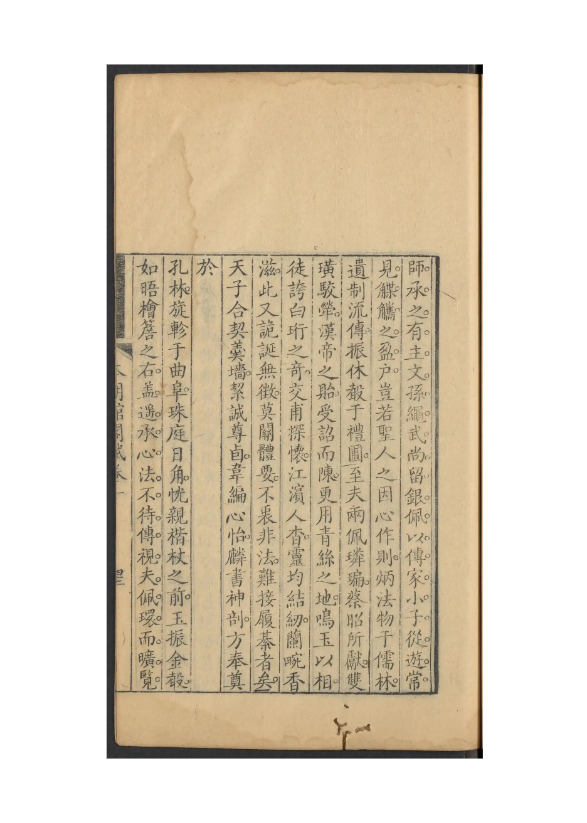 師承之有主文孫繩武尚留銀佩以傳家小子從遊常
見觿觿之盈户豈若聖人之因心作則炳法物于儒林
遺制流傳振休殸于禮圃至夫兩佩璘㻞蔡昭所獻雙
璜駮犖漢帝之貽受詔而陳更用青絲之地鳴玉以相
徒誇白珩之奇交甫探懷江濱人杳靈均結紉蘭畹香
滋此又詭誕無徵莫關體要不袭非法難接履綦者矣
天子合契羹墻絜誠尊卣韋編心怡麟書神剖方奉奠
於
孔林旋軫于曲阜珠庭日角怳親楷杖之前玉振金殸
如晤檜簷之右盖邉承心法不待傳視夫佩環而曠覽
本朝館閣賦卷一